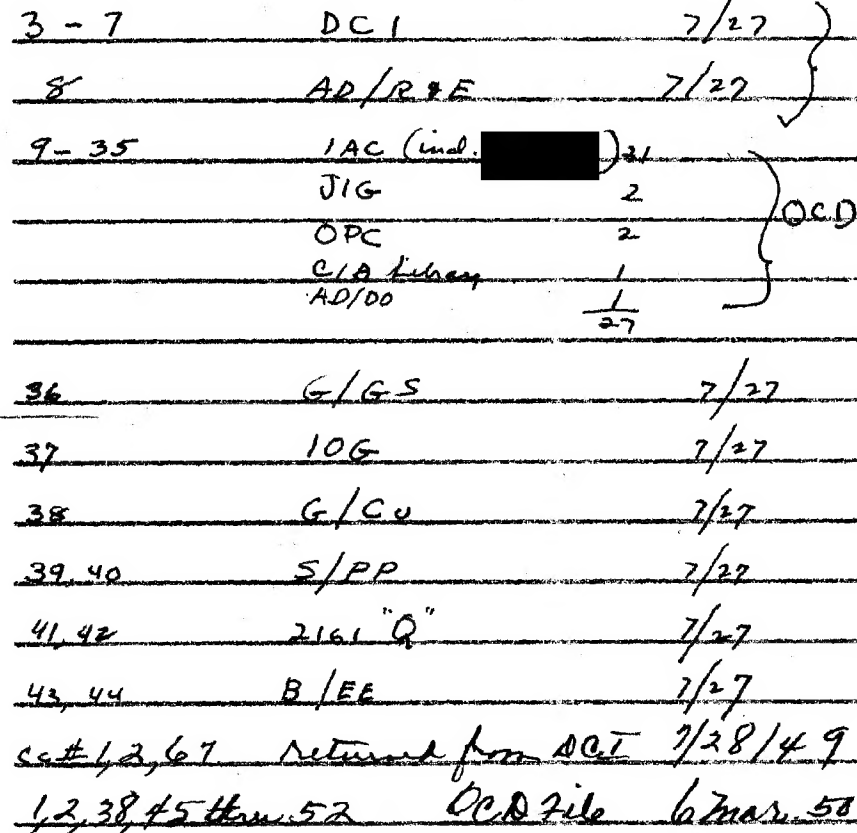 3 - 7 DCI 7/27
8 AD/R&E 7/27
9 - 35 IAC (incl. ) 21
JIG 2
OPC 2 OCD
CIA Library 1
AD/OO 1
27
36 G/GS 7/27
37 IOG 7/27
38 G/Cu 7/27
39, 40 S/PP 7/27
41, 42 2161 "Q" 7/27
43, 44 B/EE 7/27
cc# 1, 2, 67 returned from DCI 7/28/49
1, 2, 38, 45 thru 52 OCD File 6 Mar. 50